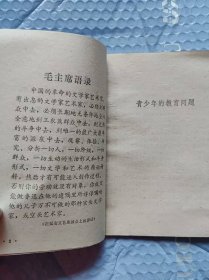 毛主席语录
中国的革命的文学家艺术家,
有出息的文学家艺术家,必须到群
众中去,必须长期地无条件地全心
全意地到工农兵群众中去,到火热
的斗争中去,到唯一的最广大最丰
富的源泉中去,观察、体验、研究、
分析一切人,一切阶级,一切
群众,一切生动的生活形式和斗争
形式,一切文学和艺术的原始材料,
然后才有可能进入创作过程。
否则你的劳动就没有对象,你就只
能做鲁迅在他的遗嘱里所谆谆嘱咐
他的儿子万不可做的那种空头文学
家,或空头艺术家。
《在延安文艺座谈会上的讲话》
· 2 ·
青少年的教育问题